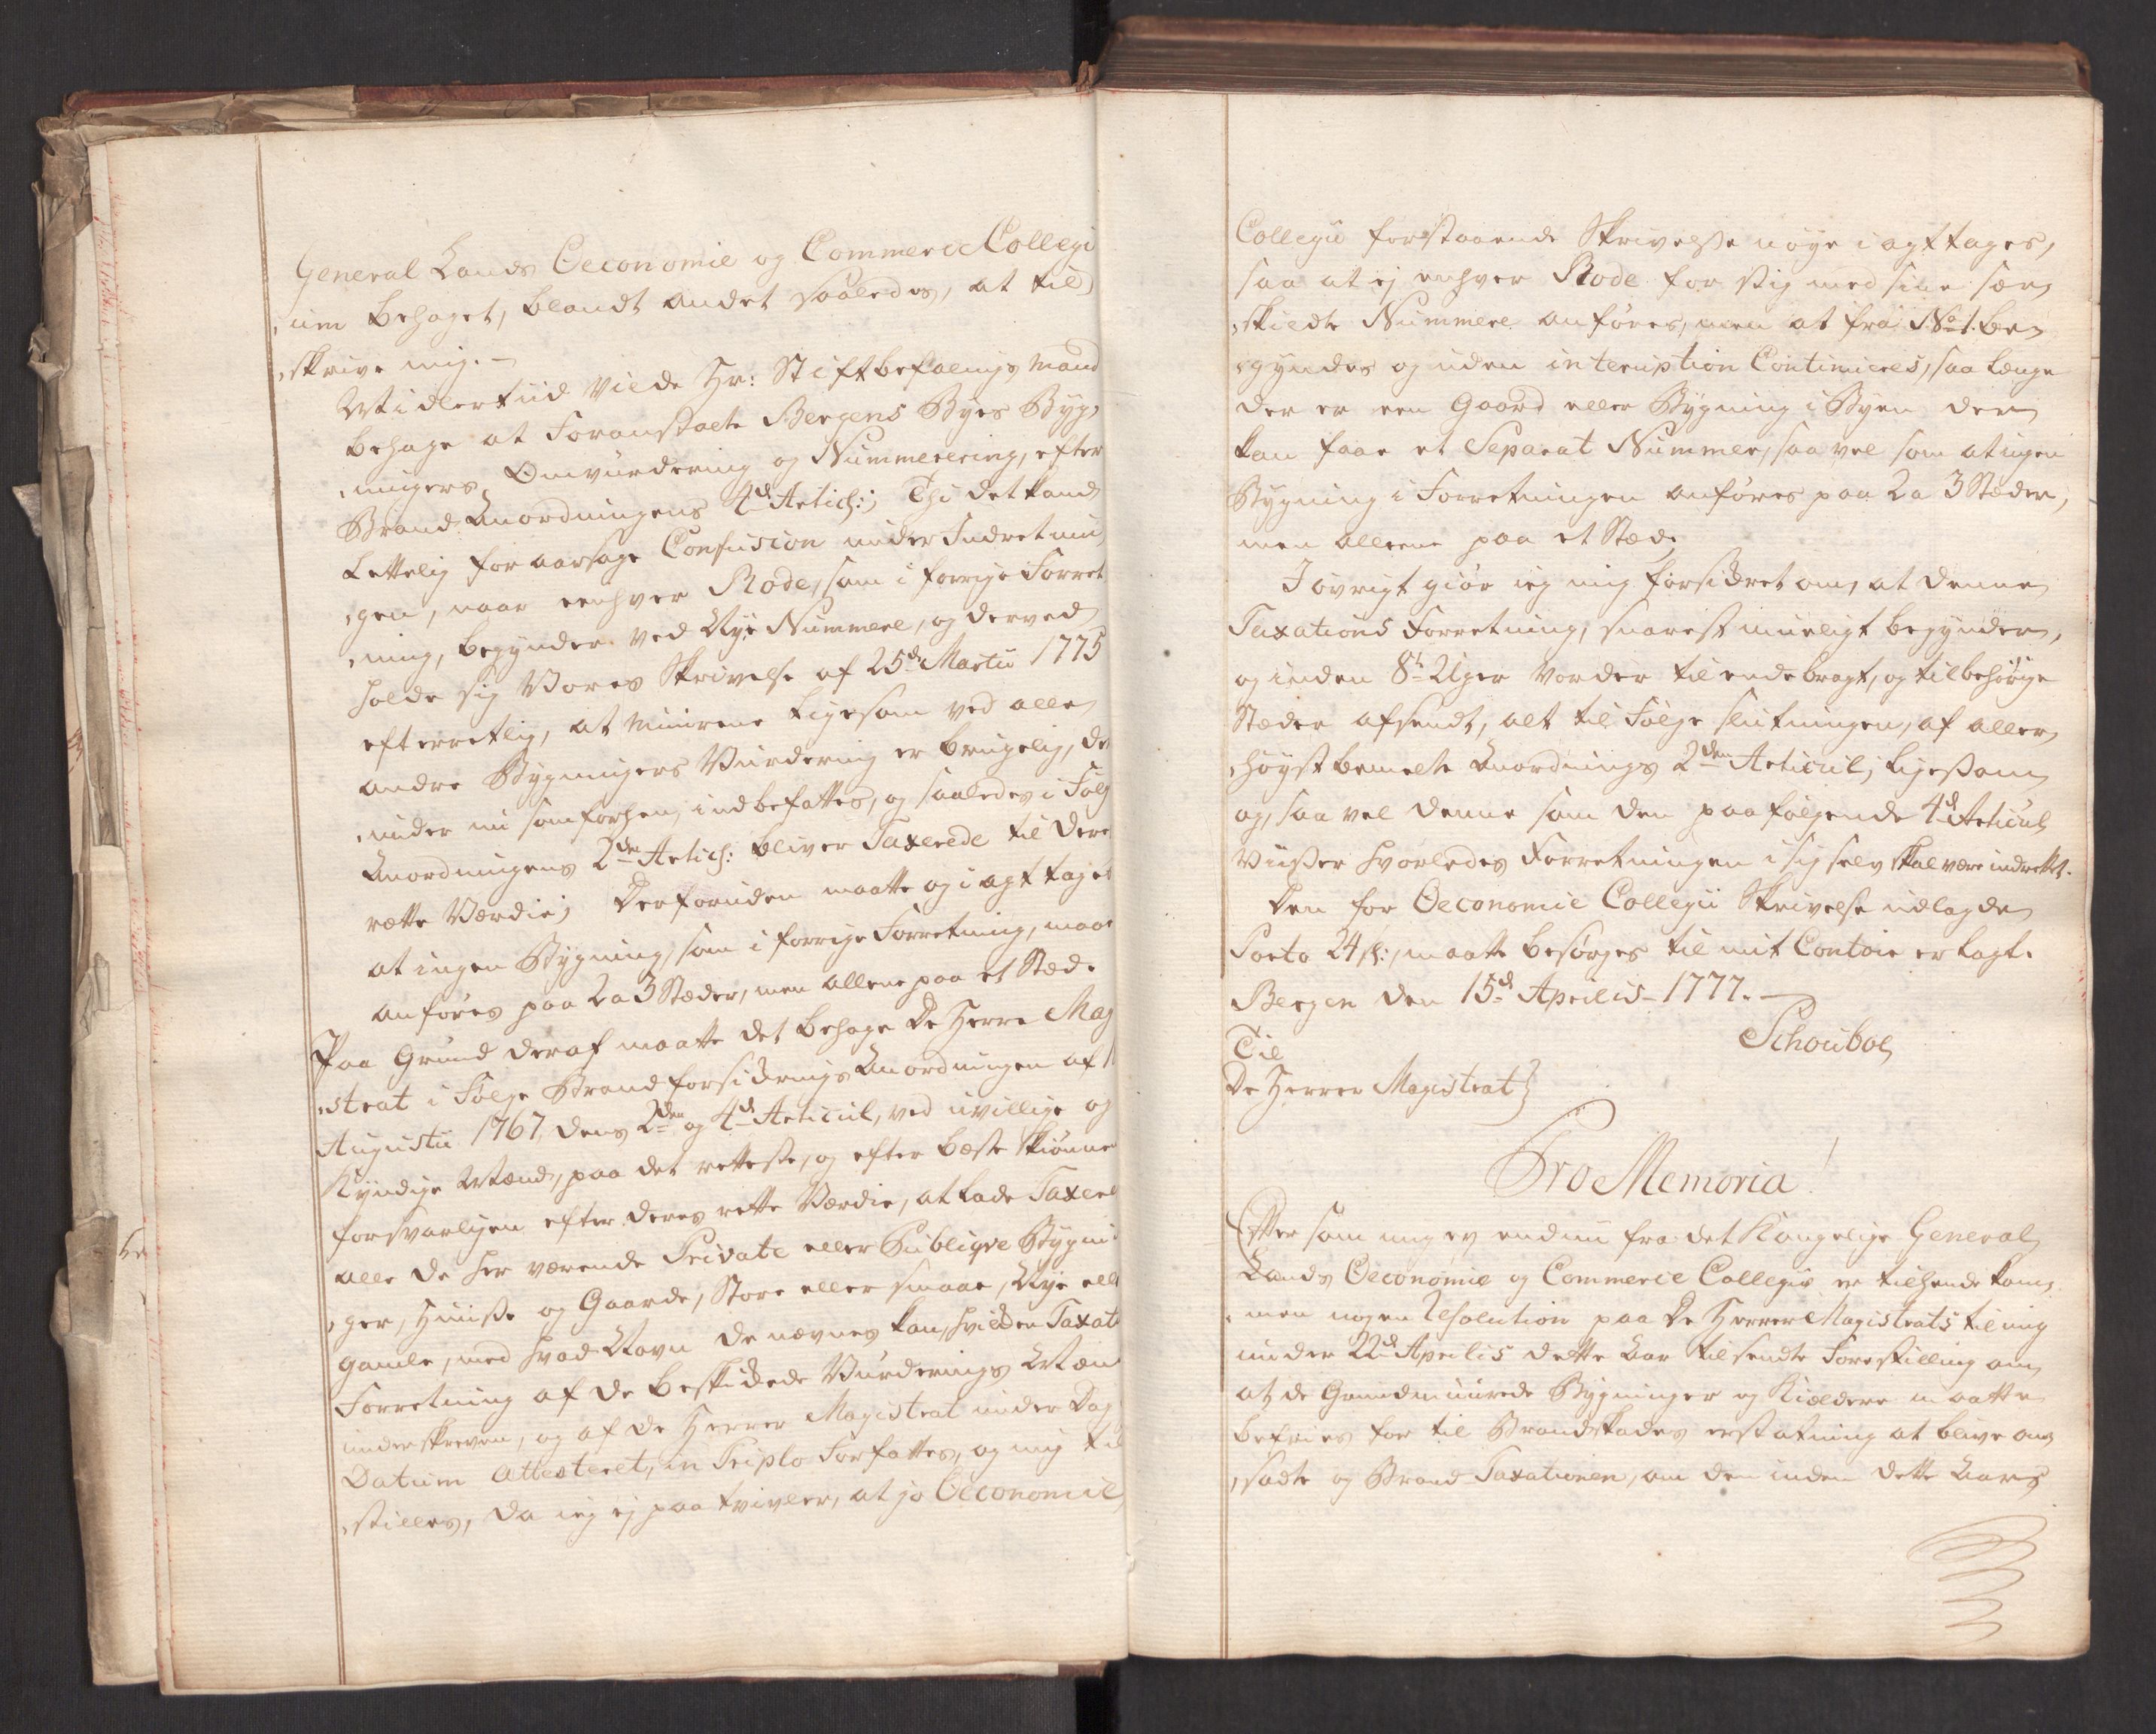 General Lands Oeconomie og Commerce Collegi
um behaget, blandt andet saaledes, at til
skrive mig.-
Midlertiid vilde Hr: Stiftbefalingsmand
behage at foranstalte Bergens Byes Byg,
ningers Omvurdering og Nummerering, efter
Brand Anordningens 4de Artich:; Thi det kand
Lettelig foraarsage Confusion under Indretnin
gen, naar eenhver Rode, som i forrige Forret
ning, begynder ved Nye Nummere, og derved
holde sig Vores Skrivelse af 25de Martii 1775
efterretlig, at Muurene ligesom ved alle
andre Bygningers Vurdering er brugelig, der
under nu som forhen, indbefattes, og saaledes i Følg
Anordningens 2den Artich: bliver Taxerede til dere
rette Værdie; Desforuden maatte og iagttages
at ingen Bygning, som i forrige Forretning, maae
anføres paa 2 a 3 Stæder, men allene paa et Stæd.
Paa Grund deraf maatte det behage De Herre Mag
strat i Følge Brandforsikrings Anordningen af 1
Augustii 1767, dens 2den og 4de Articul, ved uvillige og
Kyndige Mænd, paa det retteste, og efter beste skiønne
forsvarligen efter deres rette Værdie, at lade Taxere
alle de her værende Private eller Publiqve Bygni
ger, Huuse og Gaarde, Store eller smaae, Nye elle
gamle, med hvad Navn de nævnes kan, hvilken Taxati
Forretning af de beskikkede Vurderings Mæn
underskreven, og af De Herrer Magistrat under Dag
Datum Attesteret, in Triplo forfattes, og mig til
stilles, da ieg ej paatvivler, at jo Oeconomie
Collegii forstaaende Skrivelse nøye iagttages,
saa at ej enhver Rode for sig med sine sær
skildte Nummere anføres, men at fra No 1. be
gyndes og uden interuption Continueres, saa længe
der er een Gaard eller Bygning i Byen der
kan faae et Separat Nummer, saavel som at ingen
Bygning i Forretningen anføres paa 2 a 3 Stæder,
men alleene paa et Stæd.
Iøvrigt giør ieg mig forsikret om, at denne
Taxations Forretning, snarest mueligt begynder,
og inden 8te Uger vorder tilendebragt, og tilbehørige
Stæder afsendt, alt til Følge slutningen, af aller
høystbemelte Anordnings 2den Articul, ligesom
og, saavel denne som den paafølgende 4de Articul
viiser hvorledes Forretningen i sig selv skal være indrettet.
Den for Oeconomie Collegii Skrivelse udlagde
Porto 24 s:, maatte besørges til mit Contoir erlagt.
Bergen den 15de Aprilis 1777.
Schouboe
Til
De Herrer Magistrat
Pro Memoria!
Eftersom mig ey endnu fra det Kongelige General
Lands Oeconomie og Commerce Collegio er tilhende kom
men nogen Resolution paa De Herrer Magistrats til mig
under 22de Aprilis dette Aar tilsendte Forestilling om
at de Grundmuurede Bygninger og Kieldere maatte
befries for til Brandskades erstatning at blive an
sadte og Brand Taxationen, om den inden dette Aars